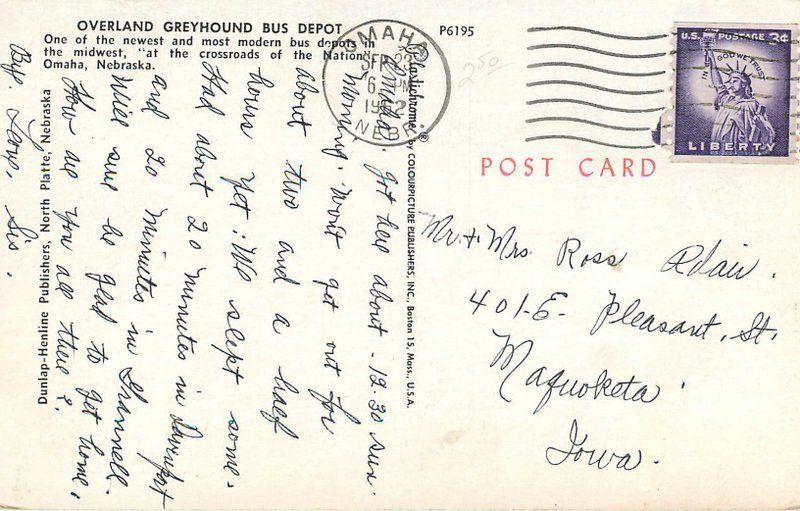 OVERLAND GREYHOUND BUS DEPOT
One of the newest and most modern bus depots in
the midwest, "at the crossroads of the Nation"
Omaha, Nebraska.
P6195
OMAHA
SEP 23
6 PM
1962
NEBR
250
U.S. POSTAGE 3¢
IN GOD WE TRUST
LIBERTY
POST CARD
Omaha.
Got here about - 12.30 sun.
morning. Won't get out for
about two and a half
hours yet. We slept some.
Had about 20 minutes in Davenport
and 20 minutes in Grannell.
Will sure be glad to get home.
How are you all there?
Bye. Love, Sis.
Mr. + Mrs Ross Adair.
401-E- Pleasant, St.
Maquoketa
Iowa.
Plastichrome ® by COLOURPICTURE PUBLISHERS, INC., Boston 15, Mass., U.S.A.
Dunlap-Henline Publishers, North Platte, Nebraska